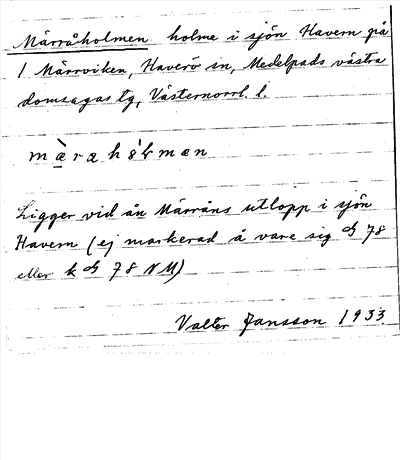 Märråholmen holme i sjön Havern på
1 Märrviken, Haverö sn, Medelpads västra
domsagas tg, Västernorrl. l.
mæ̀rahól̥mæn
Ligger vid ån Märråns utlopp i sjön
Havern (ej markerad å vare sig G 78
eller k G 78 NV)
Valter Jansson 1933.